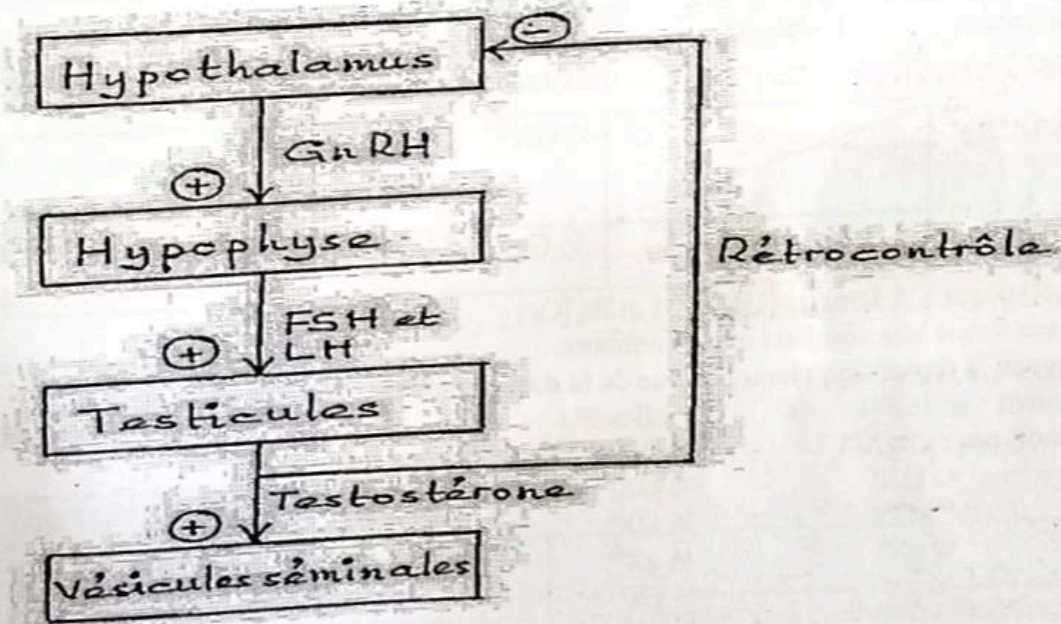 ⊖
Hypothalamus
GnRH
⊕
Hypophyse
Rétrocontrôle
FSH et
⊕ LH
Testicules
Testostérone
⊕
Vésicules séminales